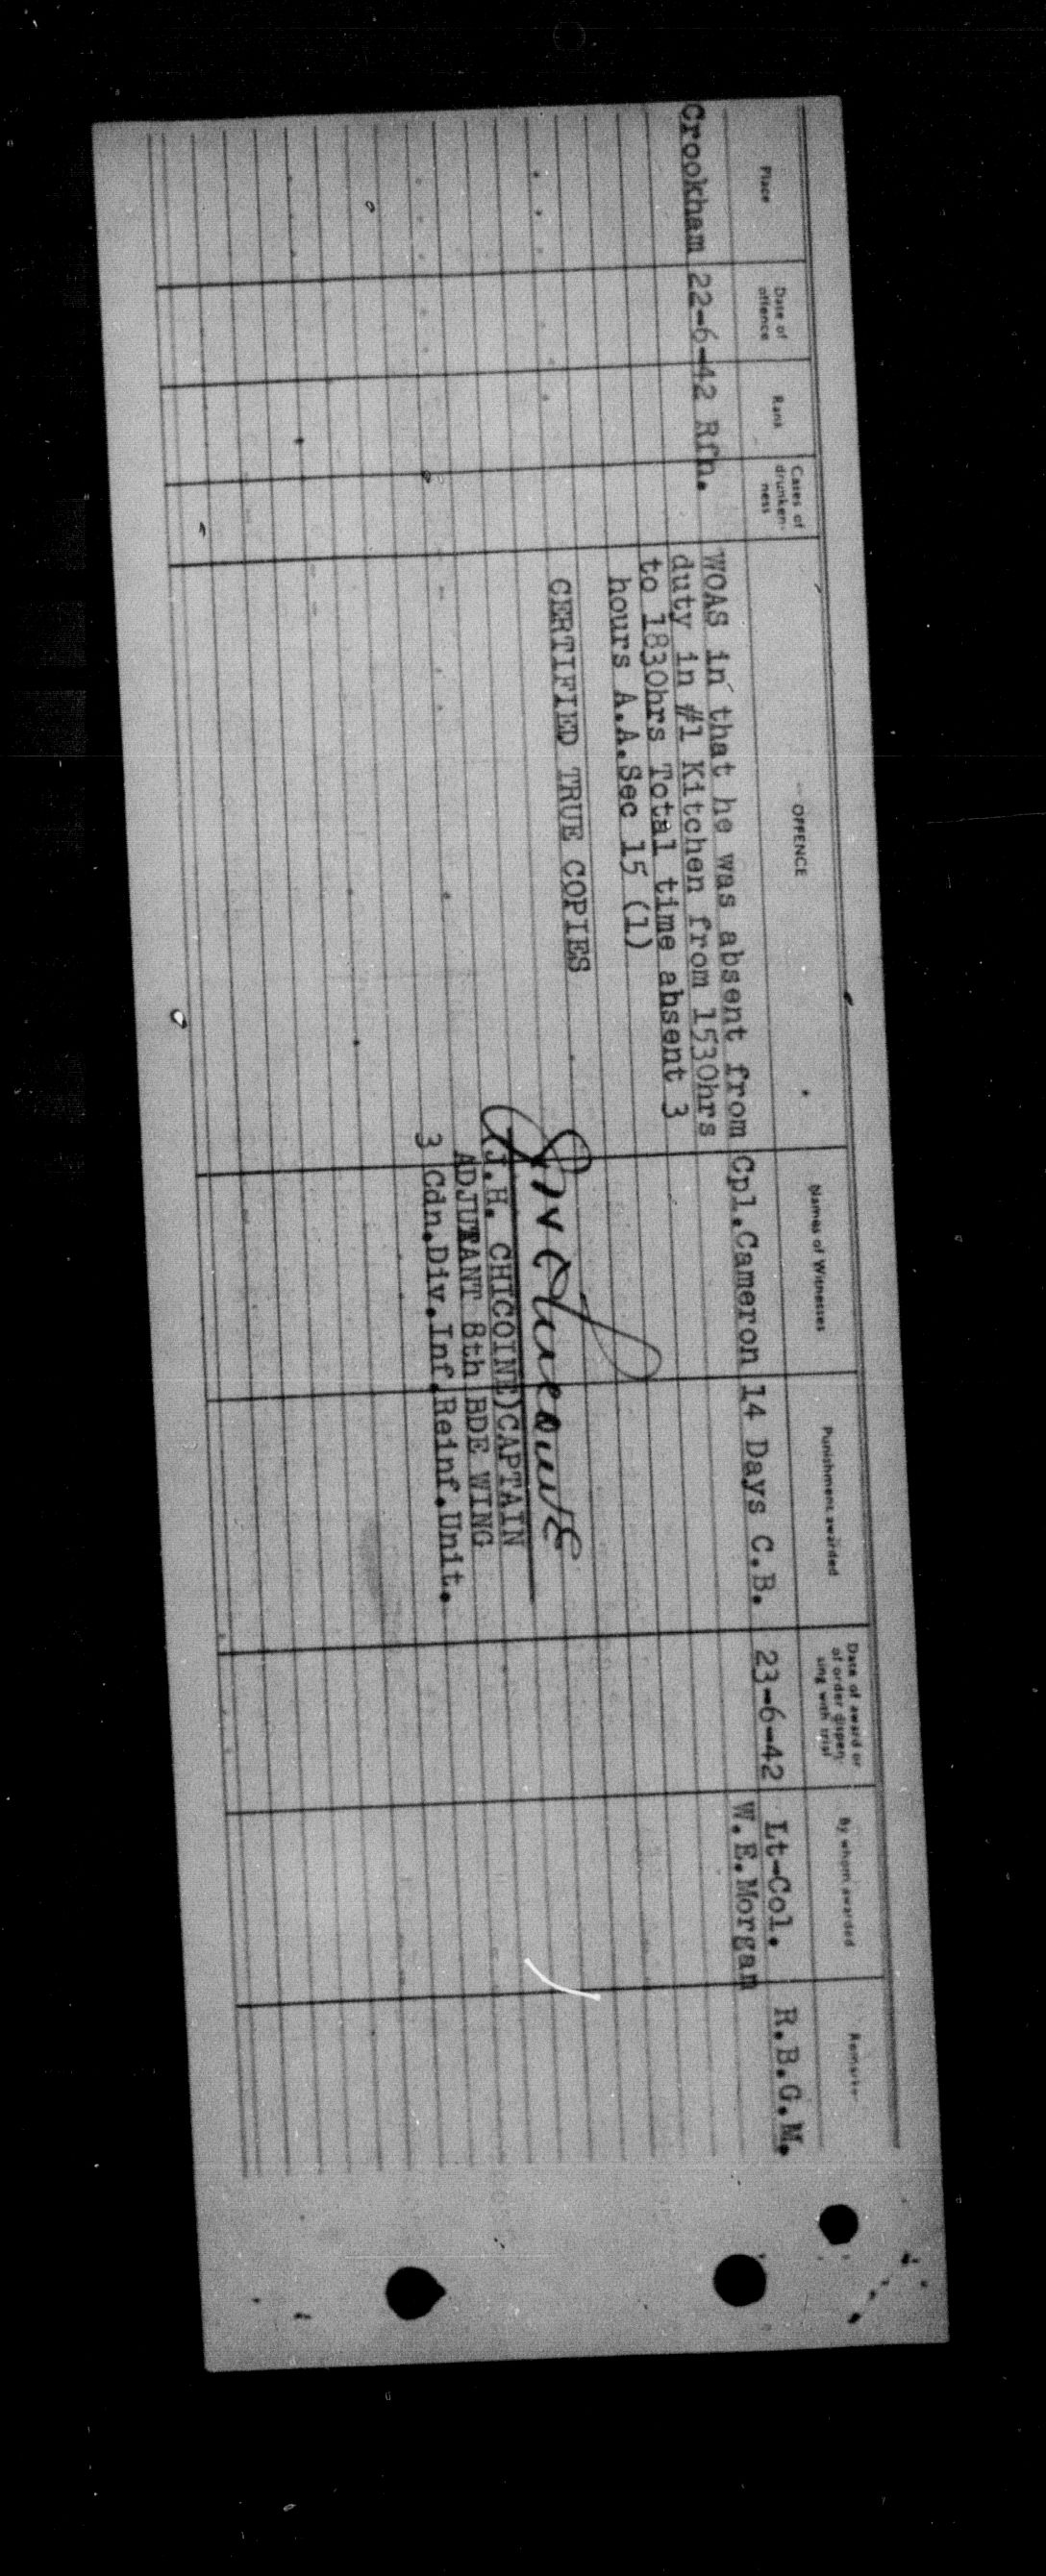 Place Date of offence Rank Cases of drunken-ness OFFENCE Names of Witnesses Punishment awarded Date of award or of order dispen-sing with trial By whom awarded Remarks
Crookham 22-6-42 Rfn. WOAS in that he was absent from Cpl.Cameron 14 Days C.B. 23-6-42 Lt-Col. R.B.G.M.
duty in #1 Kitchen from 1530hrs W.E.Morgan
to 1830hrs Total time absent 3
hours A.A.Sec 15 (1)
CERTIFIED TRUE COPIES
(J.H. CHICOINE)CAPTAIN
ADJUTANT 8th BDE WING
3 Cdn.Div.Inf.Reinf.Unit.